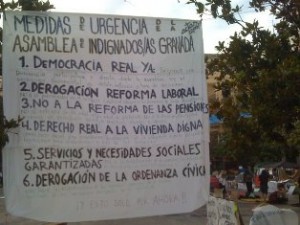 MEDIDAS DE URGENCIA DE LA
ASAMBLEA DE INDIGNADOS/AS GRANADA
1. DEMOCRACIA REAL YA:
2. DEROGACIÓN REFORMA LABORAL
3. NO A LA REFORMA DE LAS PENSIONES
4. DERECHO REAL A LA VIVIENDA DIGNA
5. SERVICIOS Y NECESIDADES SOCIALES
GARANTIZADAS
6. DEROGACIÓN DE LA ORDENANZA CÍVICA